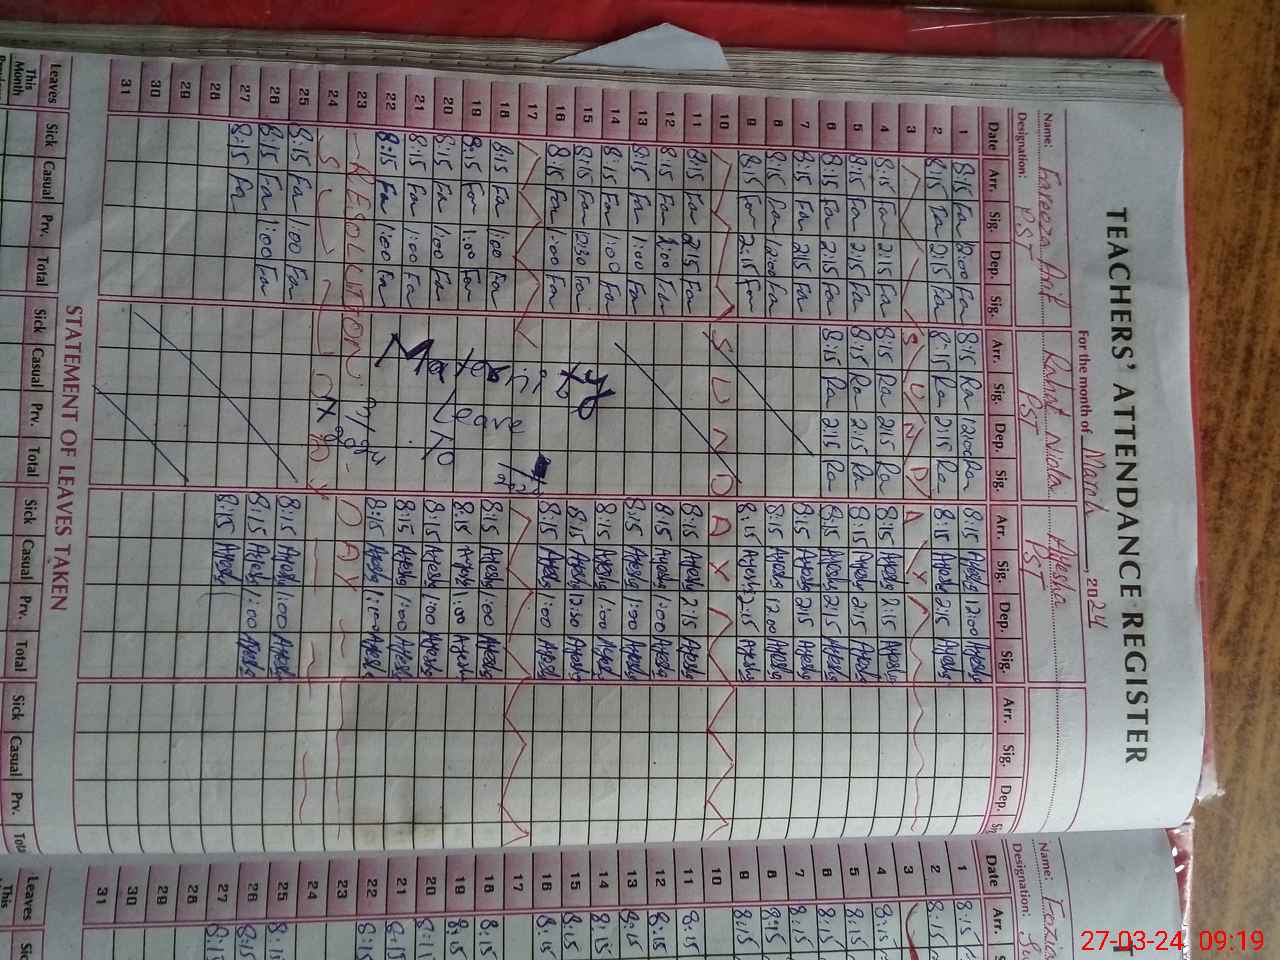 TEACHERS' ATTENDANCE REGISTER
For the month of March, 2024
Name: Fareeza Anil
Designation: PST
PST
Ayesha
PST
Date Arr. Sig. Dep. Sig. Arr. Sig. Dep. Sig. Arr. Sig. Dep. Sig. Arr. Sig. Dep.
1 8:15 Fa 12:00 Fa 8:15 Ra 12:00 Ra 8:15 Ayesha 12:00 Ayesha
2 8:15 Fa 2:15 Fa 8:15 Ra 2:15 Ra 8:15 Ayesha 2:15 Ayesha
3 SUNDAY
4 8:15 Fa 2:15 Fa 8:15 Ra 2:15 Ra 8:15 Ayesha 2:15 Ayesha
5 8:15 Fa 2:15 Fa 8:15 Ra 2:15 Ra 8:15 Ayesha 2:15 Ayesha
6 8:15 Fa 2:15 Fa 8:15 Ra 2:15 Ra 8:15 Ayesha 2:15 Ayesha
7 8:15 Fa 2:15 Fa 8:15 Ayesha 2:15 Ayesha
8 8:15 Fa 12:00 Fa 8:15 Ayesha 12:00 Ayesha
9 8:15 Fa 2:15 Fa 8:15 Ayesha 2:15 Ayesha
10 SUNDAY
11 8:15 Fa 2:15 Fa 8:15 Ayesha 2:15 Ayesha
12 8:15 Fa 1:00 Fa 8:15 Ayesha 1:00 Ayesha
13 8:15 Fa 1:00 Fa 8:15 Ayesha 1:00 Ayesha
14 8:15 Fa 1:00 Fa 8:15 Ayesha 1:00 Ayesha
15 8:15 Fa 12:30 Fa 8:15 Ayesha 12:30 Ayesha
16 8:15 Fa 1:00 Fa 8:15 Ayesha 1:00 Ayesha
17
18 8:15 Fa 1:00 Fa 8:15 Ayesha 1:00 Ayesha
19 8:15 Fa 1:00 Fa 8:15 Ayesha 1:00 Ayesha
20 8:15 Fa 1:00 Fa 8:15 Ayesha 1:00 Ayesha
21 8:15 Fa 1:00 Fa 8:15 Ayesha 1:00 Ayesha
22 8:15 Fa 1:00 Fa 8:15 Ayesha 1:00 Ayesha
Maternity
Leave
To
23 RESOLUTION DAY
24 SUNDAY
25 8:15 Fa 1:00 Fa 8:15 Ayesha 1:00 Ayesha
26 8:15 Fa 1:00 Fa 8:15 Ayesha 1:00 Ayesha
27 8:15 Fa 8:15 Ayesha
28
29
30
31
STATEMENT OF LEAVES TAKEN
Leaves Sick Casual Prv. Total Sick Casual Prv. Total Sick Casual Prv. Total Sick Casual Prv.
This Month
Name:
Designation:
Date Arr.
1 8:15
2 8:15
3
4 8:15
5 8:15
6 8:15
7 8:15
8 8:15
9 8:15
10
11 8:15
12 8:15
13 8:15
14 8:15
15 8:15
16 8:15
17
18 8:15
19 8:15
20 8:15
21 8:15
22 8:15
23
24
25 8:15
26 8:15
27 8:15
28
29
30
31
Leaves
This
27-03-24 09:19